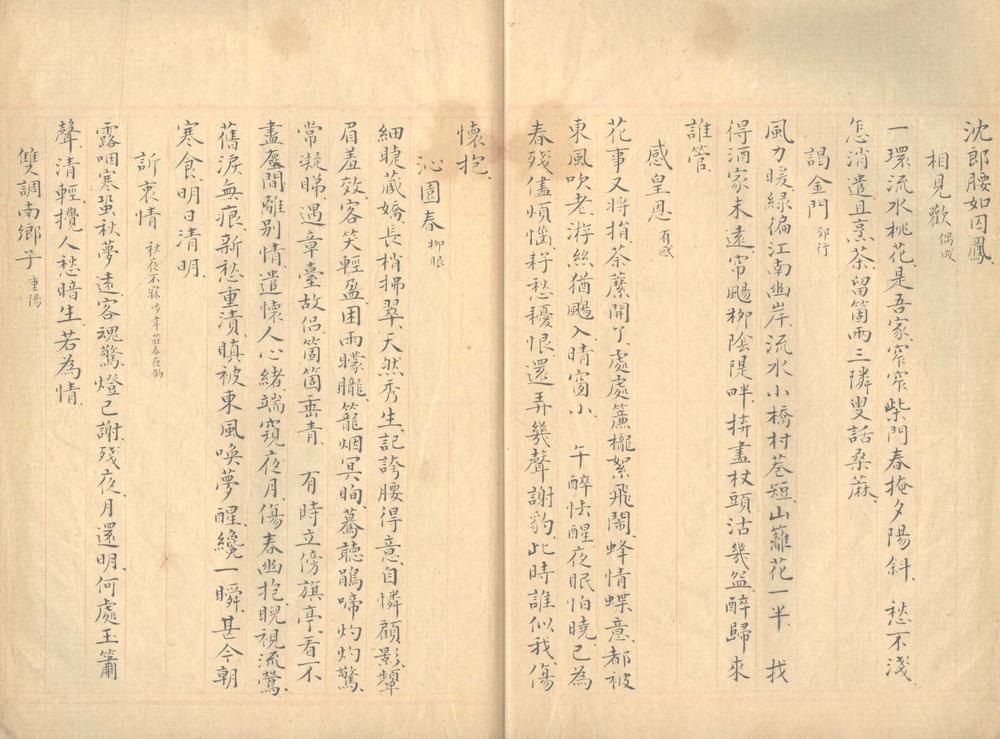 沈郎腰如囚鳳、
相見歡 偶成
一環流水桃花、是吾家、窄窄柴門春掩夕陽斜、 愁不淺、
怎消遣、且烹茶、留箇兩三隣叟話桑蔴、
謁金門 郊行
風力暖、綠徧江南幽岸、流水小橋村巷短、山籬花一半、 找
得酒家未遠、帘颺柳陰隄畔、拚盡杖頭沽幾盌、醉歸來
誰管、
感皇恩 有感
花事又將捐、荼蘼開了、處處簾櫳絮飛鬧、蜂情蝶意、都被
東風吹老、游絲猶颺入、晴窗小、 午醉怯醒、夜眠怕曉、已為
春殘儘煩惱、耔愁耰恨、還弄幾聲謝豹、此時誰似我、傷
懷抱、
沁園春 柳眼
細睫蔵嬌、長梢掃翠、天然秀生、記誇腰得意、自憐顧影、顰
眉羞效、客笑輕盈、困雨矇朧、籠烟冥眴、驀聽鵑啼灼灼驚、
常凝睇、遇章臺故侶、箇箇垂青、 有時立傍旗亭、看不
盡塵間離別情、遣懷人心緒、端窺夜月、傷春幽抱、睨視流鶯、
舊淚無痕、新愁重漬、瞋被東風喚夢醒、纔一瞬、甚今朝
寒食、明日清明、
訴衷情 秋夜不寐步韋莊春夜韵
露咽寒蛩秋夢遠、客魂驚、燈已謝、殘夜、月還明、何處玉簫
聲、清輕、攪人愁暗生、若為情、
雙調南鄉子 重陽